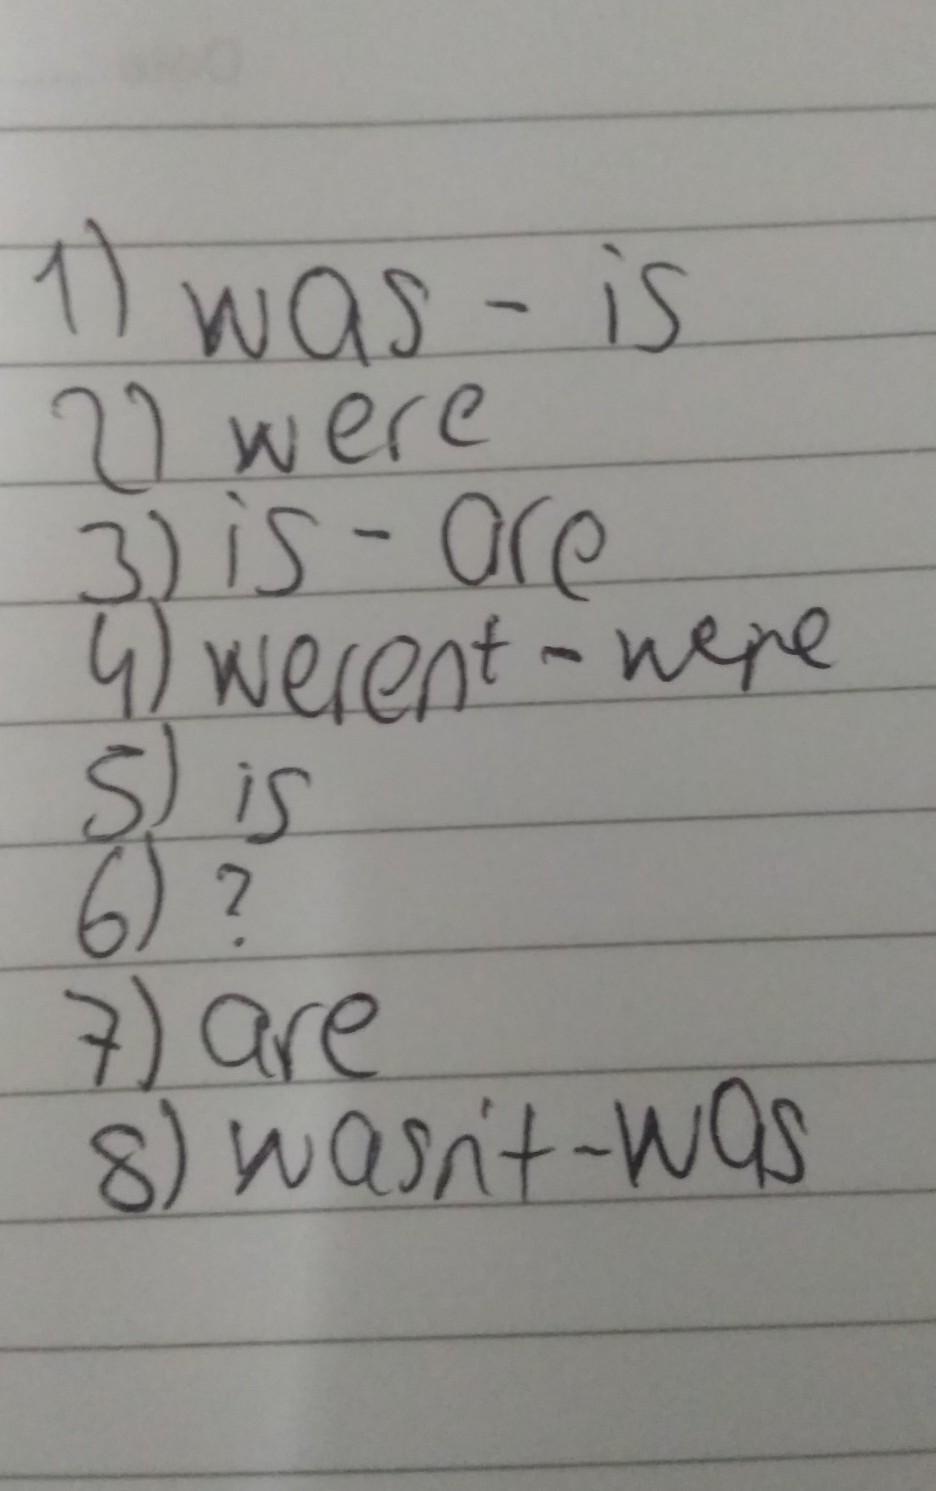 1) was - is
2) were
3) is - are
4) werent - were
5) is
6) ?
7) are
8) wasn't - was